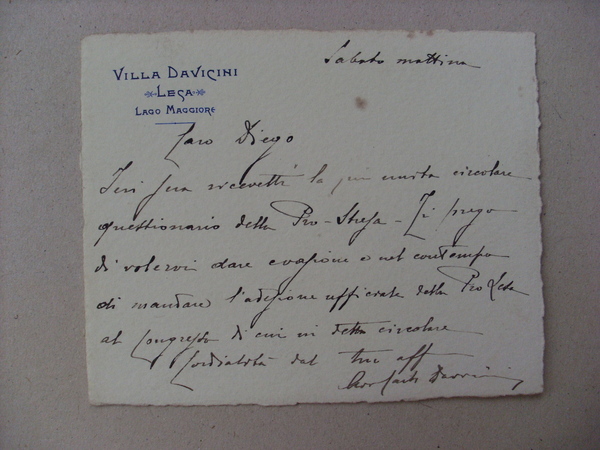 VILLA DAVICINI
LESA
LAGO MAGGIORE
Sabato mattina
Caro Diego
Ieri sera ricevetti la qui unita circolare
questionario della Pro-Stresa - Ti prego
di volervi dare evasione e nel contempo
di mandare l'adesione ufficiale della Pro Lesa
al Congresso di cui in detta circolare
Cordialità dal tuo aff
Davicini